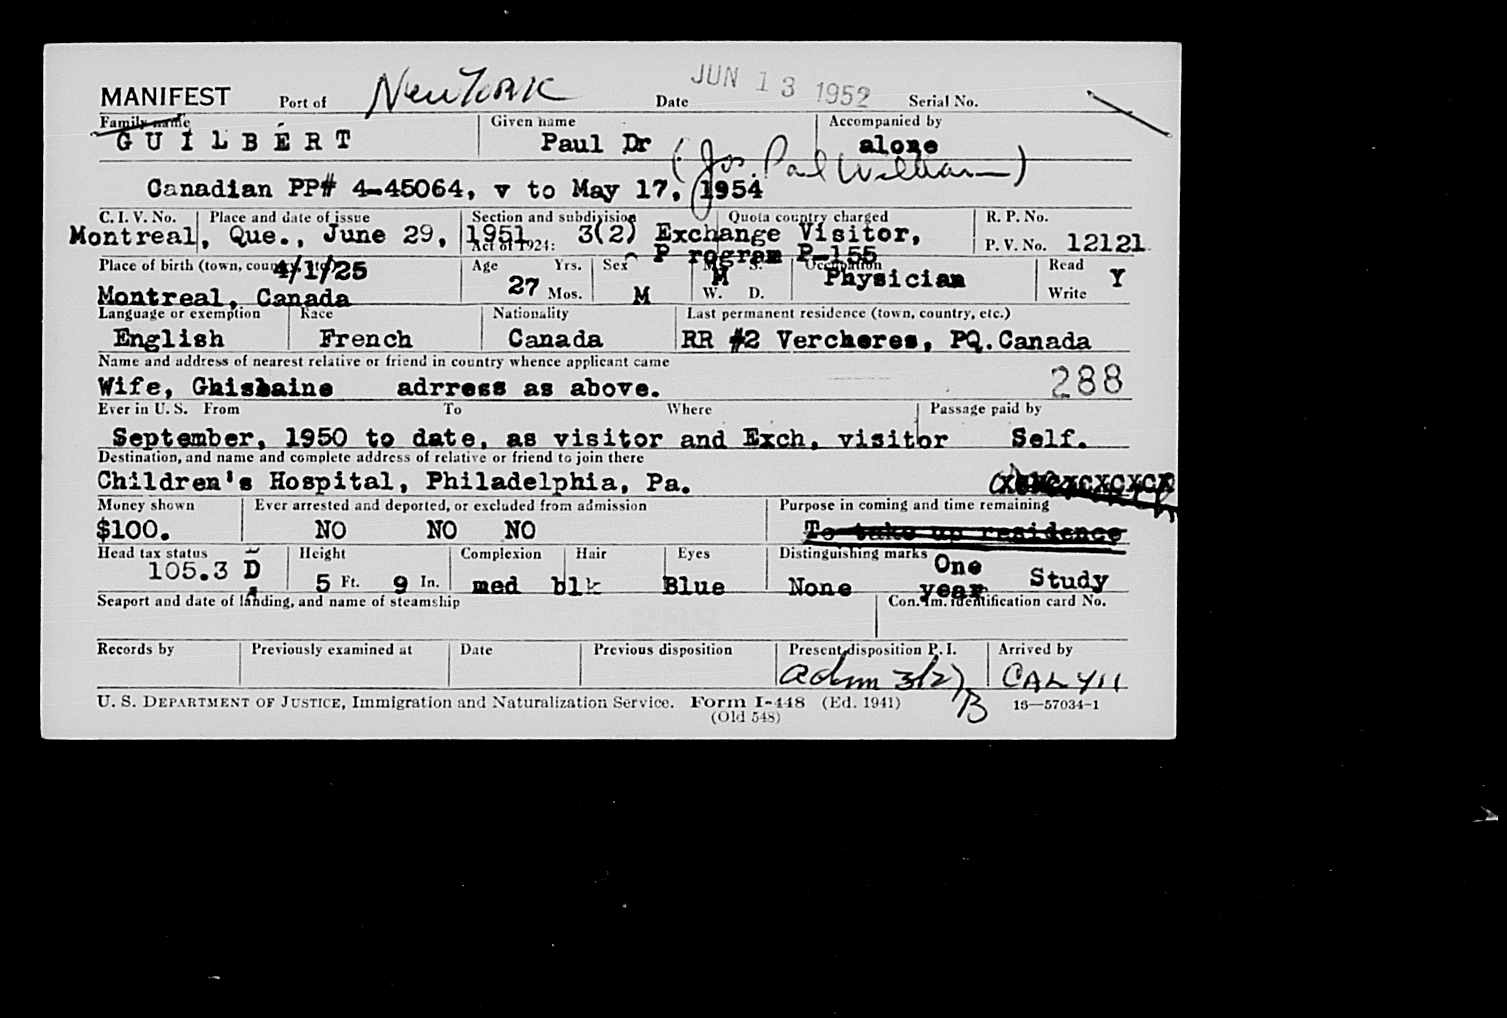 MANIFEST Port of New York Date JUN 13 1952 Serial No.
Family name Given name Accompanied by
GUILBERT Paul Dr (Jos. Paul William) alone
Canadian PP# 4-45064, v to May 17, 1954
C. I. V. No. Place and date of issue Section and subdivision Quota country charged R. P. No.
Montreal, Que., June 29, 1951 Act of 1924: 3(2) Exchange Visitor, P. V. No. 12121
P rogram P-155
Place of birth (town, country, etc.) 4/1/25 Age 27 Yrs. Mos. Sex M M. S. W. D. M Occupation Physician Read Write Y
Montreal, Canada
Language or exemption Race Nationality Last permanent residence (town, country, etc.)
English French Canada RR #2 Vercheres, PQ.Canada
Name and address of nearest relative or friend in country whence applicant came
Wife, Ghislaine adrress as above. 288
Ever in U. S. From To Where Passage paid by
September, 1950 to date, as visitor and Exch, visitor Self.
Destination, and name and complete address of relative or friend to join there
Children's Hospital, Philadelphia, Pa.
Money shown Ever arrested and deported, or excluded from admission Purpose in coming and time remaining
$100. NO NO NO To take up residence
Head tax status Height Complexion Hair Eyes Distinguishing marks
105.3 D 5 Ft. 9 In. med blk Blue None One year Study
Seaport and date of landing, and name of steamship Con. Im. identification card No.
Records by Previously examined at Date Previous disposition Present disposition P. I. Arrived by
adm 3(2) B CAL 411
U. S. DEPARTMENT OF JUSTICE, Immigration and Naturalization Service. Form I-448 (Ed. 1941) 16—57034-1
(Old 548)